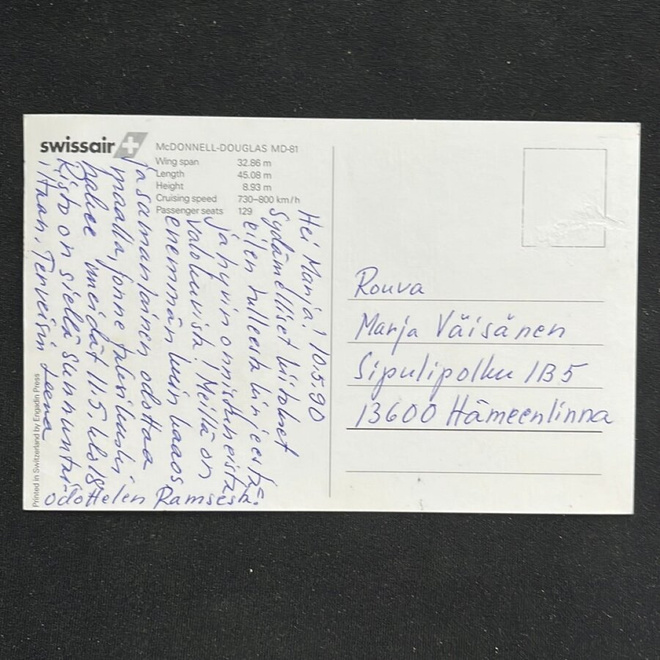 swissair
McDONNELL-DOUGLAS MD-81
Wing span 32.86 m
Length 45.08 m
Height 8.93 m
Cruising speed 730–800 km/h
Passenger seats 129
Hei Marja! 10.5.90
Sydämelliset kiitokset
eilen tulleesta kirjeestä
ja hyvin onnistuneista
valokuvista! Meillä on
enemmän kuin kaaos
ja samanlainen odottaa
maalla, jonne
hakee meidät 11.5. klo 18.
Risto on siellä sunnuntai-
iltaan. Terveisin Leena
Odottelen Ramsesta!
Printed in Switzerland by Engadin Press
Rouva
Marja Väisänen
Sipulipolku 1B5
13600 Hämeenlinna